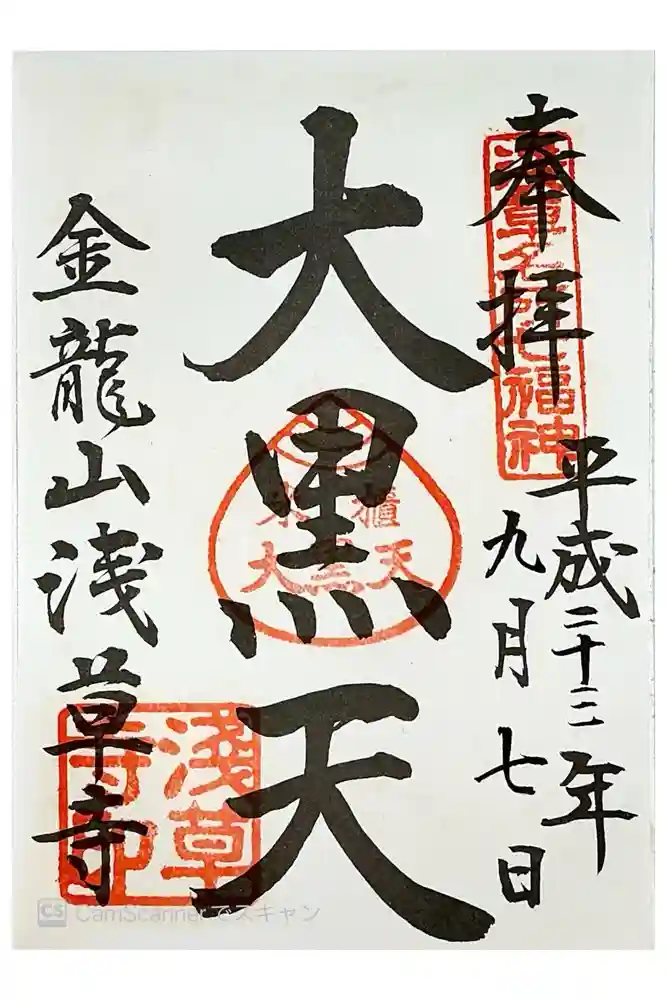 奉拝
浅草名所七福神
平成二十三年
九月七日
大黒天
米櫃
大黒天
金龍山浅草寺
浅草
寺印
CS CamScannerでスキャン